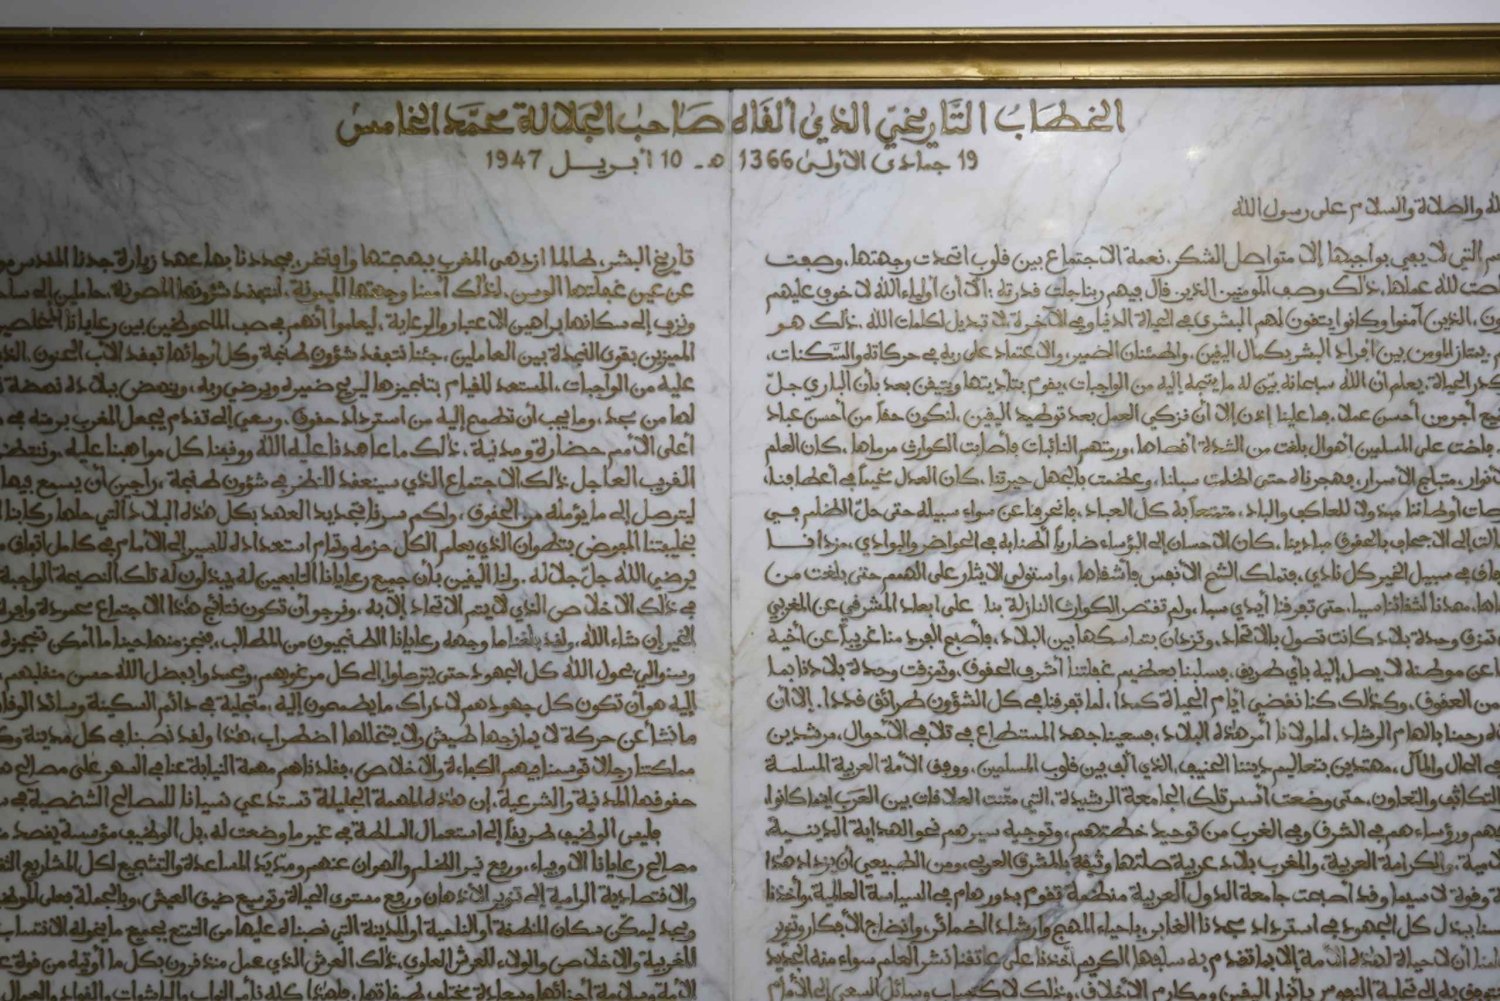 الخطاب التاريخي الذي ألقاه صاحب الجلالة محمد الخامس
19 جمادى الأولى 1366 هـ - 10 أبريل 1947
والصلاة والسلام على رسول الله
التي لا يفي بواجبها إلا متواصل الشكر، نعمة الاجتماع بين قلوب اتحدت وجهتها، وصفت
لله عملها، ذلك وصف المومنين الذين قال فيهم ربنا جلت قدرته: ألا أن أولياء الله لا خوف عليهم
الذين آمنوا وكانوا يتقون لهم البشرى في الحياة الدنيا وفي الآخرة لا تبديل لكلمات الله، ذلك هو
يمتاز المومن بين أفراد البشر بكمال اليقين، واطمئنان الضمير، والاعتماد على ربه في حركاته والسكنات،
الحياة، يعلم أن الله سبحانه بين له ما يتجه إليه من الواجبات، يقوم بتأديتها ويتيقن بعد بأن الباري جل
أجر من أحسن عملا، فما علينا إذن إلا أن نزكي العمل بعد توطيد اليقين، لنكون حقا من أحسن عباد
على المسلمين أهوال بلغت من الشدة أقصاها، ورمتهم النائبات فأصابت الكوارث مرماها، كان العلم
الأسرار، فهجرناه حتى اظلمت سبلنا، وعظمت بالجهل حيرتنا، كان العدل مخيما في أعطافنا،
أوطاننا مبذولا للعاكف والباد، متمتعا به كل العباد، فانحرفنا عن سواء سبيله حتى حل الظلم في
إلى الاجحاف بالحقوق مبادينا، كان الاحسان إلى البؤساء ضاربا أطنابه في الحواضر والبوادي،
في سبيل الخير كل نادي، فتملك الشح الأنفس فأشقاها، واستولى الايثار على الهمم حتى بلغت من
حتى تفرقنا أيدي سبا، ولم تقتصر الكوارث النازلة بنا على ابعاد المشرقي عن المغربي
وحدة بلاد كانت تصول بالاتحاد، وتزدان بتماسكها بين البلاد، فأصبح الفرد منا غريبا عن أخيه
عن موطنه لا يصل إليه بأي طريق، فسلبنا بعظيم غفلتنا أشرف الحقوق، وتمزقت وحدة بلادنا بما
من العقوق، وكذلك كنا نقضي أيام الحياة كمدا، لما تفرقنا في كل الشؤون طرائق قددا، إلا أن
رحمنا بالهام الرشاد، لما ولانا أمر هذه البلاد، فسعينا جهد المستطاع في تلافي الأحوال، مرشدين
في الحال والمآل، مهتدين بتعاليم ديننا الحنيف، الذي ألف بين قلوب المسلمين، ووفق الأمة العربية المسلمة
والتعاون، حتى وضعت أسس تلك الجامعة الرشيدة، التي متنت العلاقات بين العرب اينما كانوا،
ورؤساءهم في الشرق وفي الغرب من توحيد خطتهم، وتوجيه سيرهم نحو الهداية الدينية
والكرامة العربية، والمغرب بلاد عربية صلتها وثيقة بالمشرق العربي، ومن الطبيعي أن يزداد هذا
وقوة لا سيما وقد أصبحت جامعة الدول العربية منظمة تقوم بدور هام في السياسة العالمية، وأخذنا
بذل كل الجهود في استرداد مجدنا الغابر، باحياء المهج وارشاد الضمائر، وانضاج الأفكار وتنوير
أن لا حياة لهذه الأمة إلا بما تقدم به سلفها الكريم أخذنا على عاتقنا نشر العلم سواء منه الجديد
ومكارم الأخلاق، وذلك لاكتساب وسائل السعي إلى الأمام
تاريخ البشر، طالما ازدهى المغرب ببهجتها وافتخر، مجددنا بها عهد زيارة جدنا المقدس
عن عين غفلتها الوسن، لذلك أممنا وجهتها الميمونة، لنتفقد شؤونها المصونة، حاملين إلى
ونزف إلى سكانها براهين الاعتبار والرعاية، ليعلموا أنهم في صف الملحوظين بين رعايانا المخلصين
المميزين بقوى النجدة بين العاملين، جئنا نتفقد شؤون طنجة وكل أرجائها تفقد الأب الحنون،
عليه من الواجبات، المستعد للقيام بتنجيزها ليريح ضميره ويرضي ربه، وينهض ببلاده نهضة
لها من مجد، وما يجب أن تطمح إليه من استرداد حقوق، وسعي إلى تقدم يجعل المغرب برمته في
أعلى الأمم حضارة ومدنية، ذلك ما عاهدنا عليه الله ووقفنا كل مواهبنا عليه، وننتظر
القريب العاجل ذلك الاجتماع الذي سينعقد للنظر في شؤون طنجة، راجين أن يسمع فيها
ليتوصل إلى ما يؤمله من الحقوق، ولكم سرنا تجديد العهد بكل هذه البلاد التي حلها ركابنا
بخليفتنا المفوض بتطوان الذي يعلم الكل حزمه وتمام استعداده للسير إلى الأمام في كامل اتفاق
يرضي الله جل جلاله، ولنا اليقين بأن جميع رعايانا التابعين له يبذلون له تلك النصيحة الواجبة
في ذلك الاخلاص الذي لا يتم الاتحاد إلا به، ونرجو أن تكون نتائج هذا الاجتماع محمودة
الخير ان شاء الله، ولقد بلغنا ما وجهه رعايانا الطنجيون من المطالب، فنجز منها حينا ما أمكن تنجيزه
وسنوالي بحول الله كل الجهود حتى يتوصلوا إلى كل مرغوبهم، ويحمدوا بفضل الله حسن منقلبهم،
إليه هو أن تكون كل جهودهم لادراك ما يطمحون إليه، متجلية في دائم السكينة وسائد الوقار
ما نشأ عن حركة لا يمازجها طيش ولا يتخللها اضطراب، هذا ولقد نصبنا في كل مدينة
مملكتنا رجالا توسمنا فيهم الكفاءة والاخلاص، فقلدناهم مهمة النيابة عنا في السهر على مصالح
حقوقها المدنية والشرعية، إن هذه المهمة الجليلة تستدعي نسيانا للمصالح الشخصية في
فليس الوظيف طريقا إلى استعمال السلطة في غير ما وضعت له، بل الوظيف مؤسسة يقصد
مصالح رعايانا الأوفياء، ورفع نير الظلم والهوان عنهم ومد يد المساعدة والتشجيع لكل المشاريع
والاقتصادية الرامية إلى تنوير الأذهان ورفع مستوى الحياة وتوسيع ضيق العيش، وبالجملة فعلى
وبعد ليمكن سكان المنطقة أو الناحية أو المدينة التي نصبناه عليها من التمتع بجميع ما يخوله الانتساب
المغربية والاخلاص والولاء للعرش العلوي، ذلك العرش الذي عمل منذ قرون بكل ما أوتيه من قوة
الأمة وسلامة أجزائها وسعادة مختلف طبقاتها،